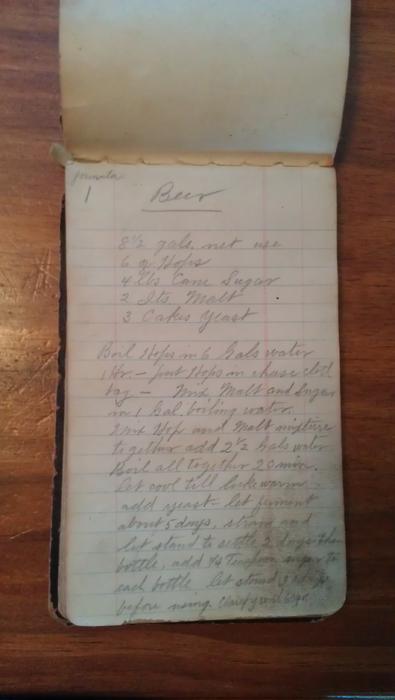 Formula
1
Beer
8 1/2 gals. net use
6 oz Hops
4 lbs Cane Sugar
2 Lts. Malt
3 Cakes Yeast
Boil Hops in 6 Gals water
1 Hr. — put Hops in chease cloth
bag — Mix Malt and Sugar
in 1 Gal boiling water.
Mix Hop and Malt mixture
together add 2 1/2 Gals water
Boil all together 20 min.
Let cool till lukewarm —
add yeast — let ferment
about 5 days, strain and
let stand to settle 2 days then
bottle, add 1/4 Teaspoon sugar to
each bottle let stand days
before using.